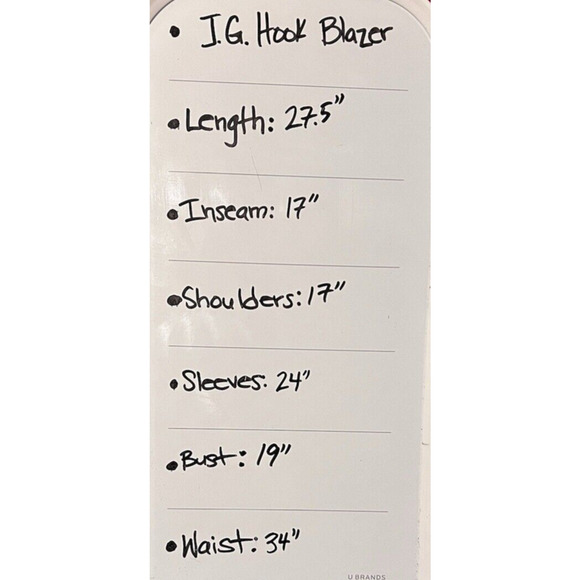 • J.G. Hook Blazer
• Length: 27.5"
• Inseam: 17"
• Shoulders: 17"
• Sleeves: 24"
• Bust: 19"
• Waist: 34"
U BRANDS